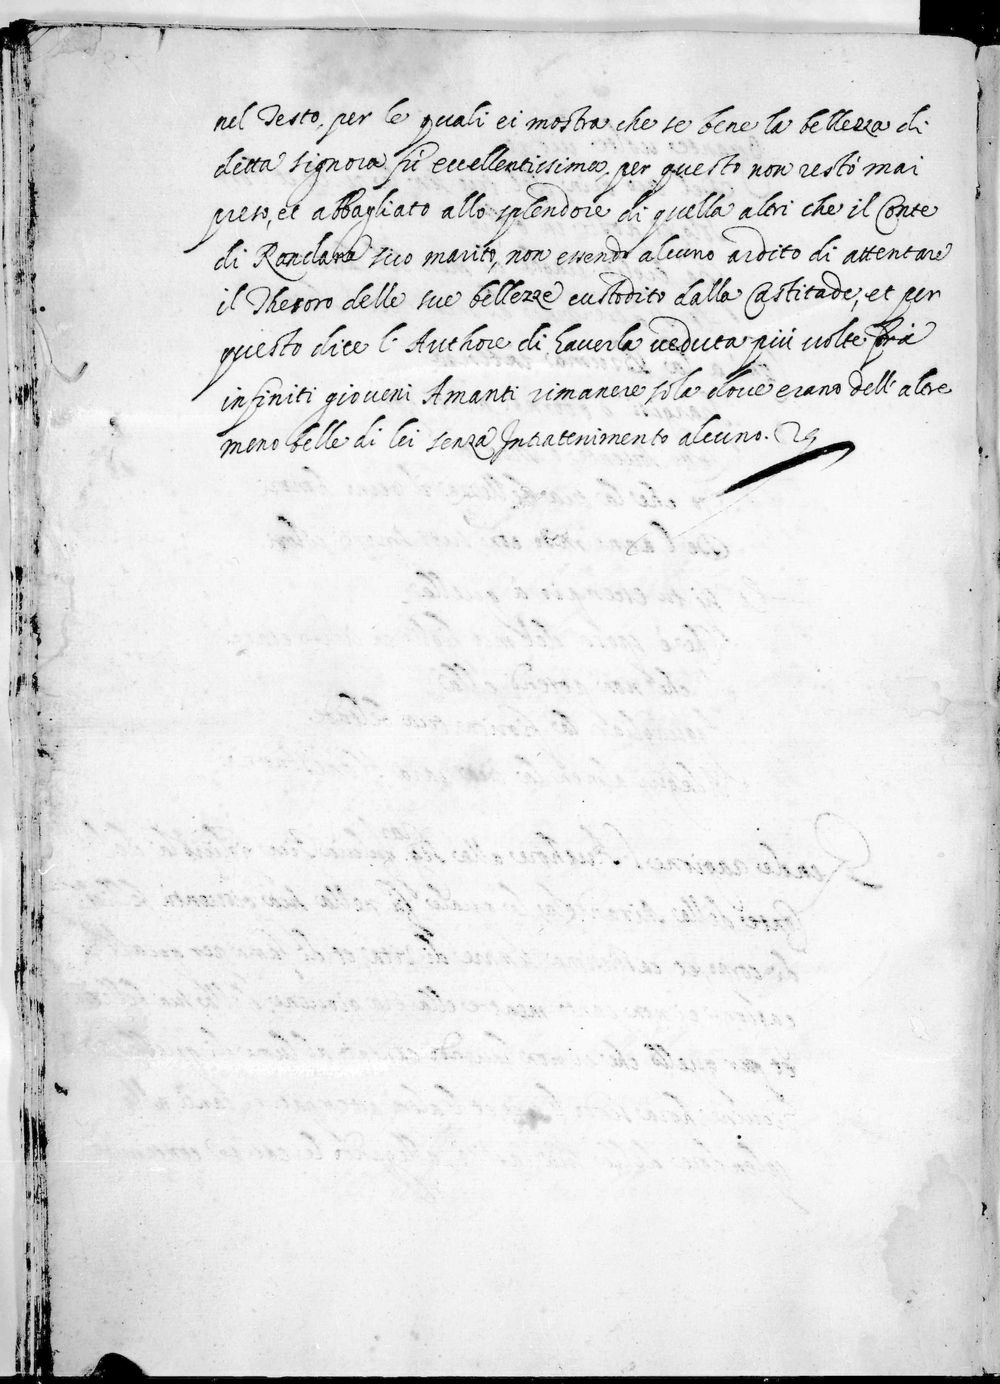 nel Testo, per le quali ei mostra che se bene la bellezza di
ditta signora fù eccellentissima. per questo non restò mai
preso, et abbagliato allo splendore di quella altri che il Conte
di Randara suo marito, non essendo alcuno ardito di attentare
il Thesoro delle sue bellezze custodito dalla Castitade, et per
questo dice l' Authore di haverla veduta più volte frà
infiniti gioveni Amanti rimanere sola dove erano dell' altre
meno belle di lei senza Intratenimento alcuno.